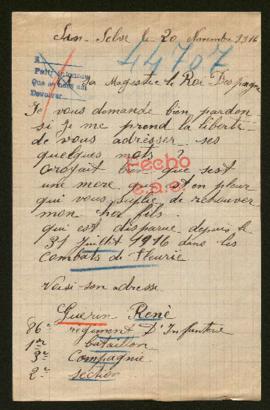 San-Selve le 20 Novembre 1916
44707
A Sa Magestrie le Roi Des pagne
Je vous demande bien pardon
si je me prend la liberté
de vous adresser ses
quelques mots
Croyait bien que s'est
une mere qui est en pleur
qui vous suplie de retrouver
mon fils
qui est disparue depuis le
31 Juillet 1916 dans les
Combats de Fleurie
Fecho
Voisi son adresse
Guerin René
86e regiment D'Infanterie
1er bataillon
3e Compagnie
2e section